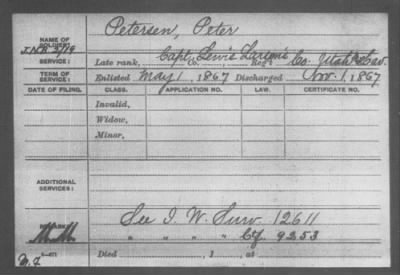 NAME OF SOLDIER: Petersen, Peter
SERVICE: Late rank, Capt. Lewis Larson's Co., Reg't Co. Utah Cav.
TERM OF SERVICE: Enlisted May 1, 1867 Discharged Nov. 1, 1867
DATE OF FILING. CLASS. APPLICATION NO. LAW. CERTIFICATE NO.
Invalid,
Widow,
Minor,
ADDITIONAL SERVICES:
See I. W. Surv 12611
" " " " Ctf 9253
REMARKS:
Died , 1 , at